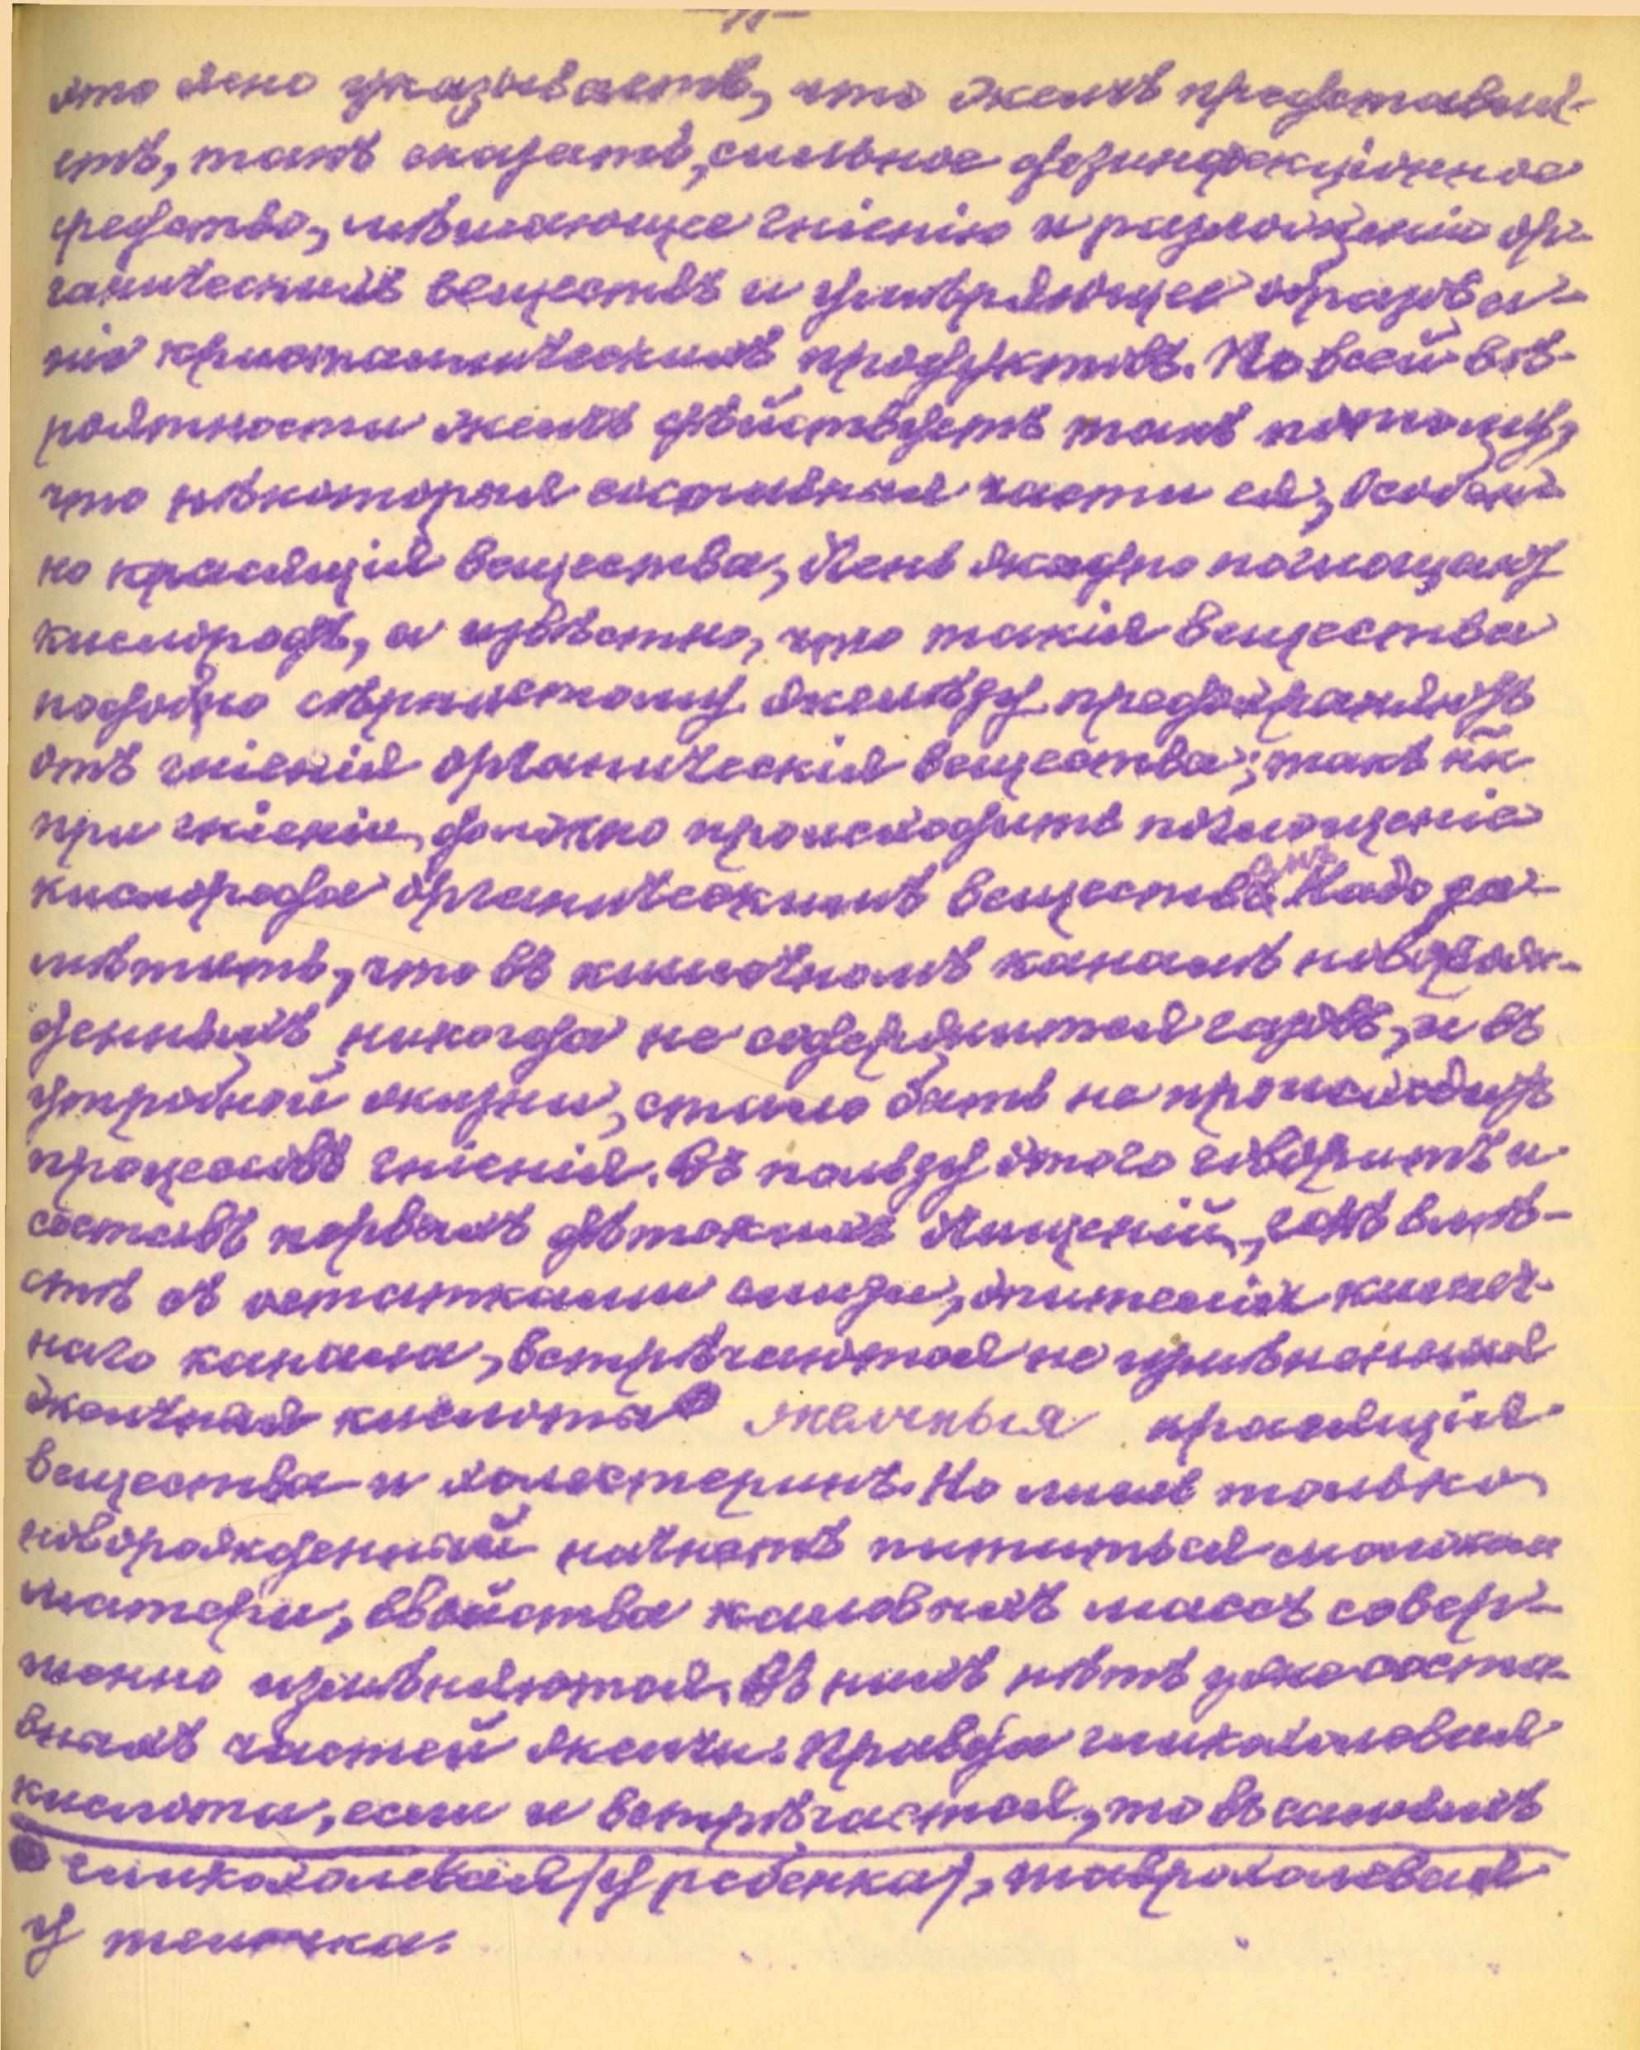 это ясно указываетъ, что желчь представля-
етъ, такъ сказать, сильное дезинфекціонное
средство, мѣшающее гніенію и разложенію ор-
ганическихъ веществъ и умѣряющее образова-
ніе кристаллическихъ продуктовъ. По всей вѣ-
роятности желчь дѣйствуетъ такъ потому,
что нѣкоторыя составныя части ея, особен-
но красящія вещества, очень жадно поглощаютъ
кислородъ, а извѣстно, что такія вещества
подобно сѣрнистому желѣзу предохраняютъ
отъ гніенія органическія вещества; такъ кк
при гніеніи должно происходить поглощеніе
кислорода органическимъ веществомъ. Надо за-
мѣтить, что въ кишечномъ каналѣ новорож-
денныхъ никогда не содержится газовъ, и въ
утробной жизни, стало быть не происходитъ
процессовъ гніенія. Въ пользу этого говоритъ и
составъ первыхъ дѣтскихъ испущеній, гдѣ вмѣ-
стѣ съ остатками слизи, эпителія кишеч-
наго канала, встрѣчаются не измѣненныя
желчная кислота желчныя красящія
вещества и холестеринъ. Но лишь только
новорожденный начнетъ питаться молокомъ
матери, свойства каловыхъ массъ совер-
шенно измѣняются. Въ нихъ нѣтъ уже соста-
вныхъ частей желчи. Правда гликохолевая
кислота, если и встрѣчается, то въ самыхъ
гликохолевая (у ребенка), таврохолевая
у теленка.